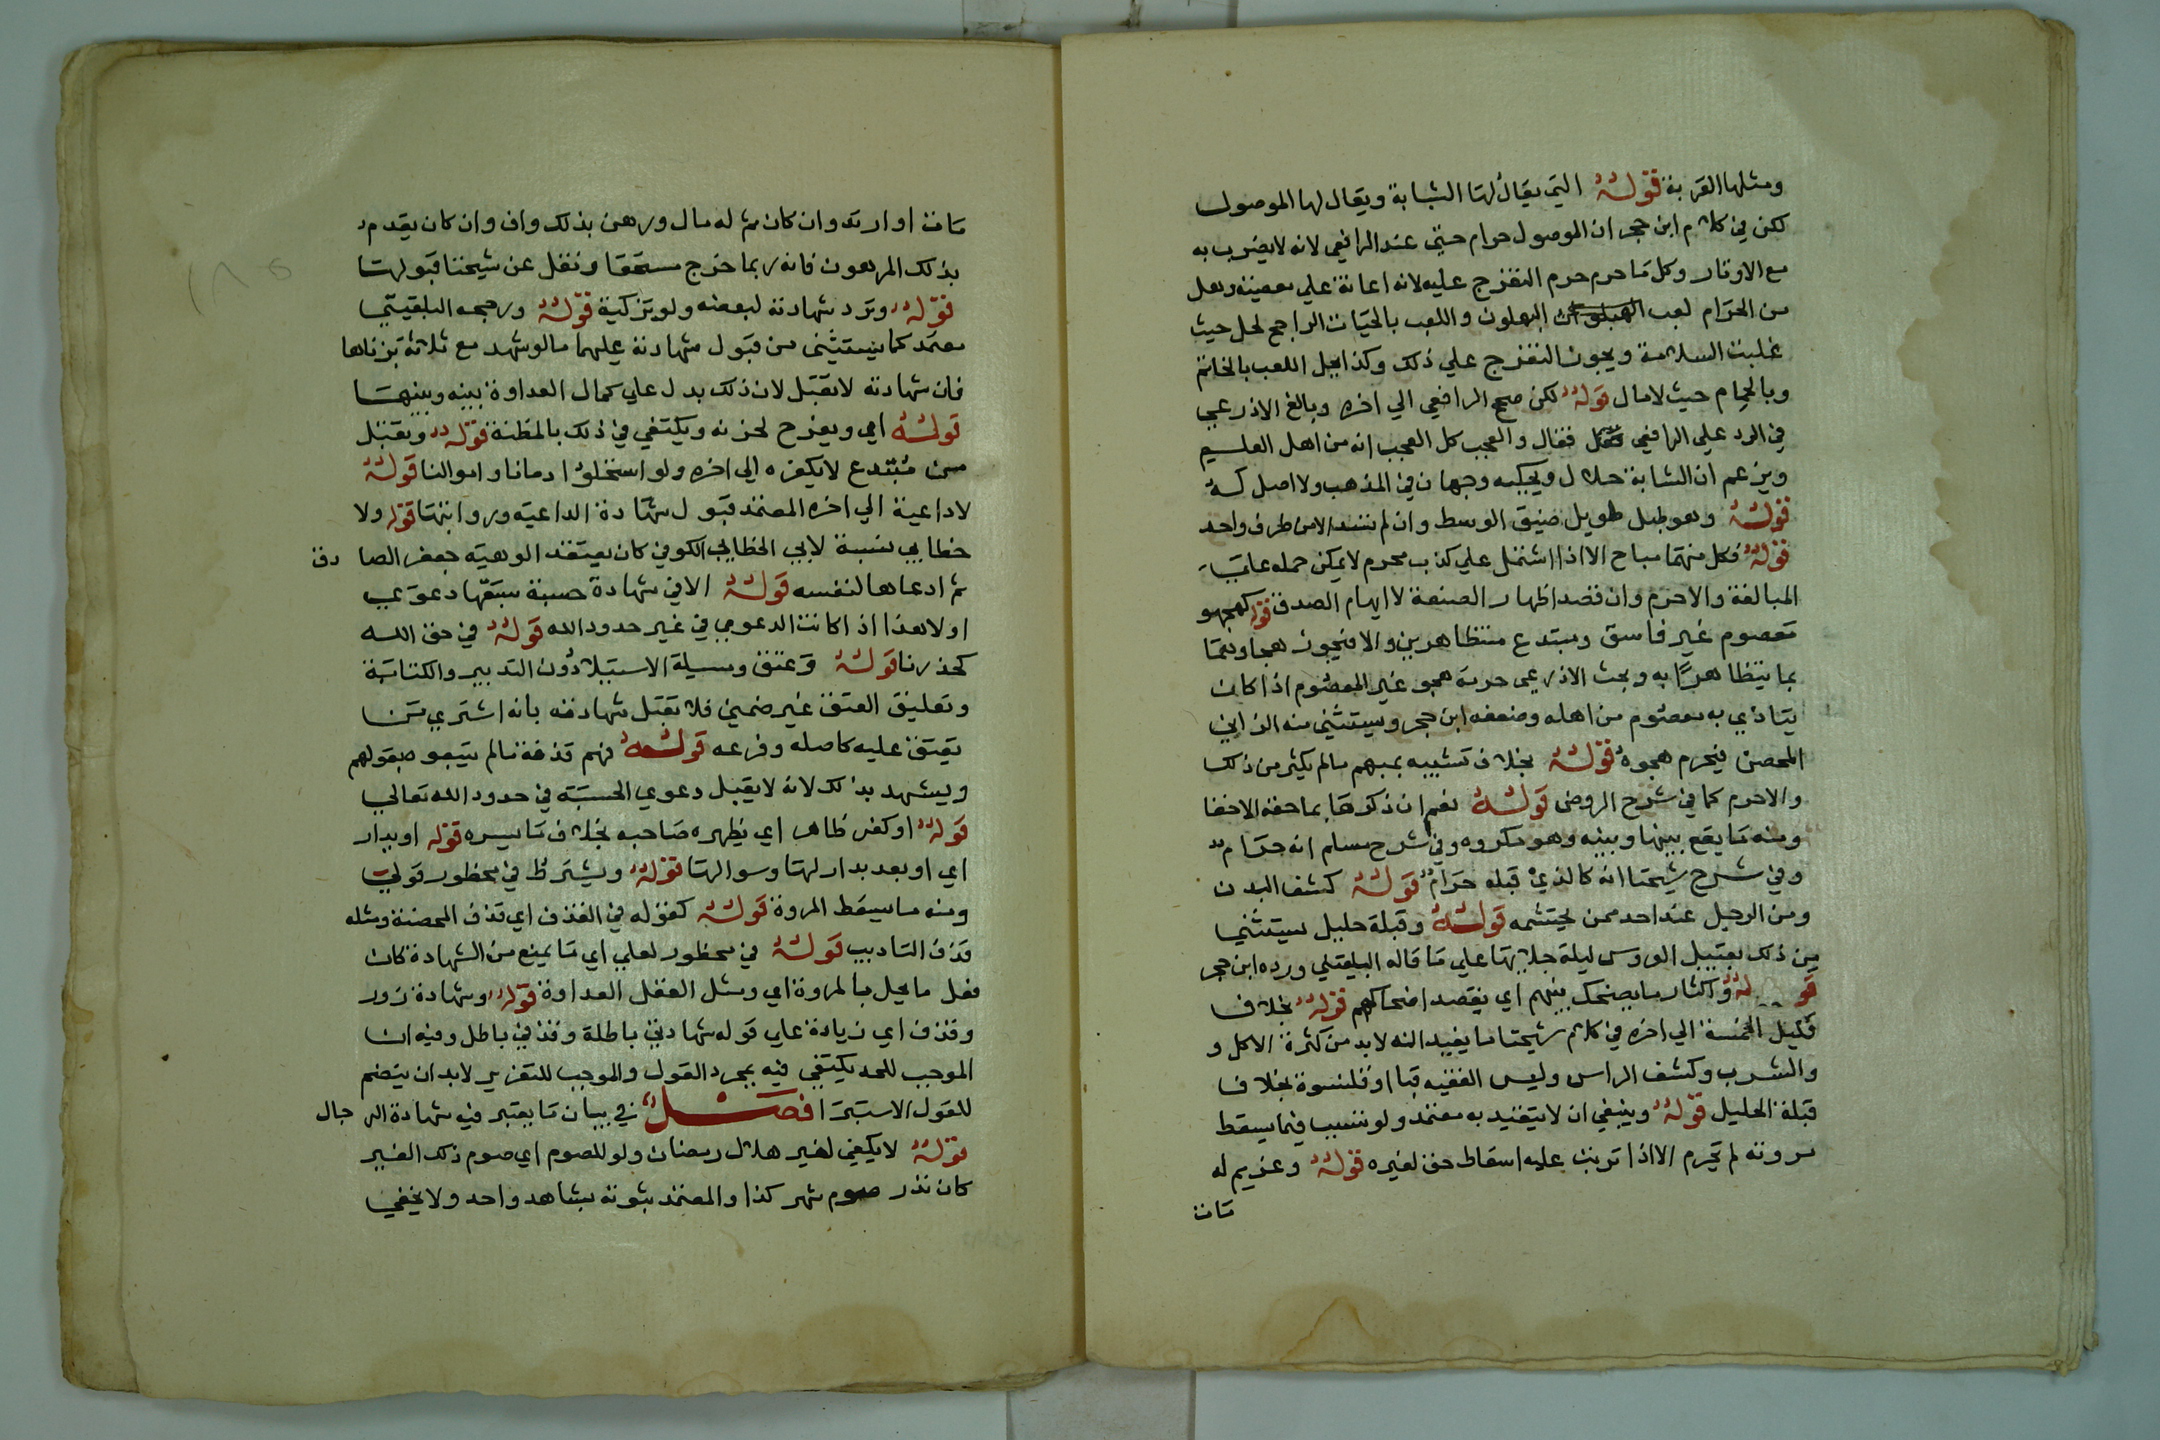 ومثلها القربة قوله التي يقال لها الشبابة ويقال لها الموصول
لكن في كلام ابن حجر ان الموصول حرام حتي عند الرافعي لانه لا يضرب به
مع الاوتار وكل ما حرم حرم التفرج عليه لانه اعانة علي معصية وهل
من الحرام لعب البهلون واللعب بالحيات الراجح لحل حيث
غلبت السلامة ويجوز التفرج علي ذلك وكذا يحل اللعب بالخاتم
وبالحمام حيث لا مال قوله لكن صحح الرافعي الي اخره وبالغ الاذرعي
في الرد علي الرافعي فقال والعجب كل العجب انه من اهل العلم
ويزعم ان الشابة حلال ويحكيه وجها في المذهب ولا اصل له
قوله وهو طبل طويل ضيق الوسط وان لم يسد الا من طرف واحد
قوله فكل منهما مباح الا اذا اشتمل علي كذب محرم لا يمكن حمله علي
المبالغة والاحرم وان قصد اظهار الصنعة لا ايهام الصدق قوله كهجو
معصوم غير فاسق ومبتدع متظاهرين والا فيجوز هجاوهما
بما يتظاهرا به وبحث الاذرعي حرمة هجو غير المعصوم اذا كان
يتاذي به معصوم من اهله وضعفه ابن حجر ويستثني منه الزاني
المحصن فيحرم هجوه قوله بخلاف تشبيبه بمبهم مالم يكثر من ذلك
والاحرم كما في شرح الروض قوله نعم ان ذكرها بما حقه الاخفا
ومنه ما يقع بينها وبينه وهو مكروه وفي شرح مسلم انه حرام
وفي شرح شيخنا انه كالذي قبله حرام قوله كشف البدن
ومن الرجل عند احد ممن يحتشمه قوله وقبلة حليل يستثني
من ذلك تقبيل العروس ليلة جلايها علي ما قاله البلقيني ورده ابن حجر
قوله واكثار ما يضحك بينهم اي بقصد اضحاكهم قوله بخلاف
قليل الخمسة الي اخره في كلام شيخنا ما يفيد انه لا بد من كثرة الاكل و
والشرب وكشف الراس ولبس الفقيه قبا او قلنسوة بخلاف
قبلة الحليل قوله وينبغي ان لا يتقيد به معتمد ولو تسبب فيما يسقط
مروته لم يحرم الا اذا ترتب عليه اسقاط حق لغيره قوله وغريم له
مات
مات او ارتد وان كان ثم له مال ورهن بذلك واف وان كان يقدم
بذلك المرهون فانه ربما خرج مستحقا ونقل عن شيخنا قبولها
قوله وترد شهادته لبعضه ولو بتزكية قوله ورجحه البلقيني
معتمد كما يستثني من قبول شهادته عليهما ما لو شهد مع ثلاثة بزناها
فان شهادته لا تقبل لان ذلك يدل علي كمال العداوة بينه وبينها
قوله اي ويفرح لحزنه ويكتفي في ذلك بالمظنة قوله وتقبل
من مبتدع لا يكفره الي اخره ولو استحلوا دمانا واموالنا قوله
لا داعية الي اخره المعتمد قبول شهادة الداعيه وروايتها قوله ولا
خطابي نسبة لابي الخطاب الكوفي كان يعتقد الوهيه جعفر الصادق
ثم ادعاها لنفسه قوله الا في شهادة حسبة سبقها دعوي
اولا هذا اذا كانت الدعوي في غير حدود الله قوله في حق الله
كحد زنا قوله وعتق وسيلة الاستيلاد دون التدبير والكتابة
وتعليق العتق غير ضمني فلا تقبل شهادته بانه اشتري من
يعتق عليه كاصله وفرعه قوله نهم قذفة مالم يتبعو بقولهم
ويشهد بذلك لانه لا يقبل دعوي الحسبه في حدود الله تعالي
قوله او كفر ظاهر اي يظهره صاحبه بخلاف ما يسره قوله او بدار
اي او بعد بدار لها وسوالها قوله ويشترط في محظور قولي
ومنه ما يسقط المروة قوله كقوله في القذف اي قذف المحصنة ومثله
قذف التاديب قوله في محظور لعلي اي ما يمنع من الشهادة كان
فعل ما يخل بالمروة اي ومثل الفعل العداوة قوله وشهادة زور
وقذف اي زيادة علي قوله شهادتي باطلة وقذفي باطل وفيه ان
الموجب للحد يكتفي فيه بمجرد القول والموجب للتعزير لا بد ان يتضم
للقول الاستبرا فصل في بيان ما يعتبر فيه شهادة الرجال
قوله لا يكفي لغير هلال رمضان ولو للصوم اي صوم ذلك الغير
كان نذر صوم شهر كذا والمعتمد ثبوته بشاهد واحد ولا يخفي